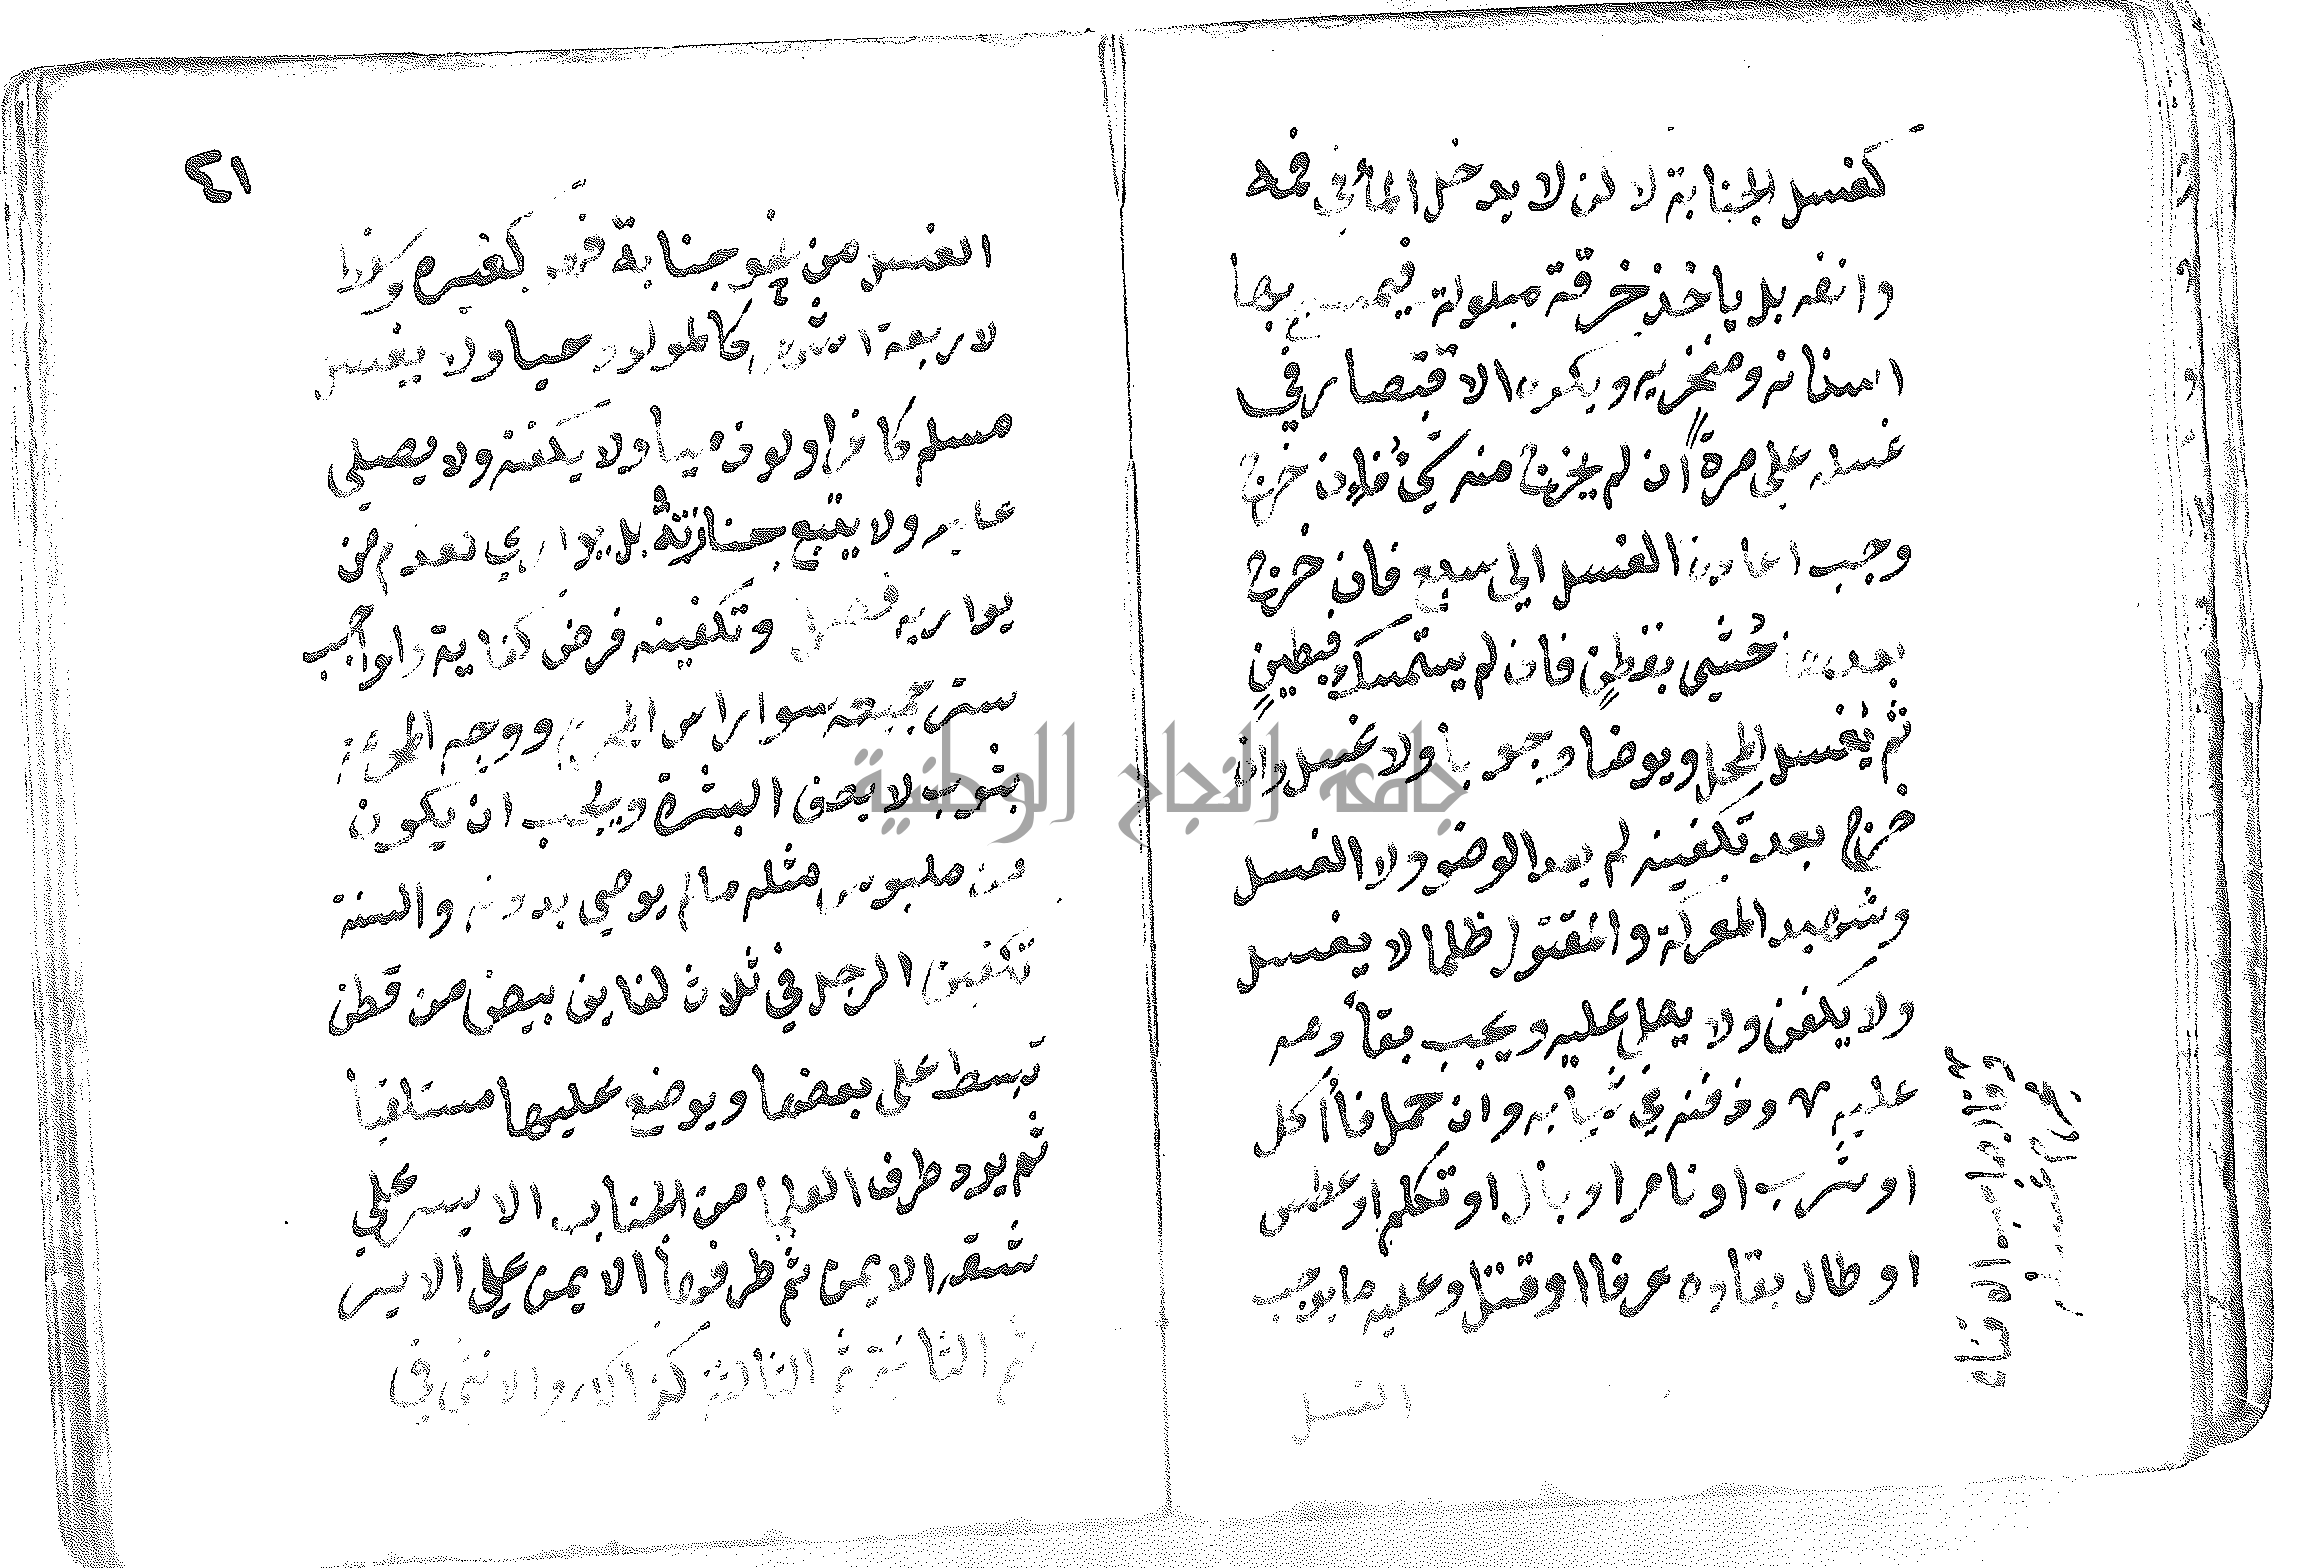 كغسل الجنابة لا لن لا يدخل الما في فمه
وانفه بل ياخذ خرقة مبلولة فيمسح بها
اسنانه ومنخريه ويكره الاقتصار في
غسله على مرة ان لم يخرج منه شي فان خرج
وجب اعادة الغسل الي سبع فان خرج
بعدها حُشي بقطنٍ فان لم يستمسك فبطينٍ
ثم يُغسل المحل ويوضا وجوبا ولا غسل وان
خرج بعد تكفينه لم يعد الوضو ولا الغسل
وشهيد المعركة والمقتول ظلما لا يغسل
ولا يكفن ولا يصلى عليه ويجب بقا دمه
عليه ودفنه في ثيابه وان حمل فأكل
او شرب او نام او بال او تكلم او عطس
او طال بقاوه عرفا او قتل وعليه ما يوجب
الغسل
٤١
الغسل من نحو جنابة فهو كغيره وكذا
لاربعة اشهر كالمولود حيا ولا يغسل
مسلم كافرا ولو ذميا ولا يكفنه ولا يصلي
عليه ولا يتبع جنازته بل يواري لعدم من
يواريه فصل وتكفينه فرض كفاية والواجب
ستر جميعه سوا راس المحرم ووجه المحرمة
بثوب لا يصف البشرة ويجب ان يكون
من ملبوس مثله مالم يوصي بدونه والسنة
تكفين الرجل في ثلاث لفايف بيض من قطن
تبسط على بعضها ويوضع عليها مستلقيا
ثم يرد طرف العليا من الجانب الايسر على
شقه الايمن ثم طرفها الايمن على الايسر
ثم الثانية ثم الثالثة كذلك والانثى في
جامعة النجاح الوطنية